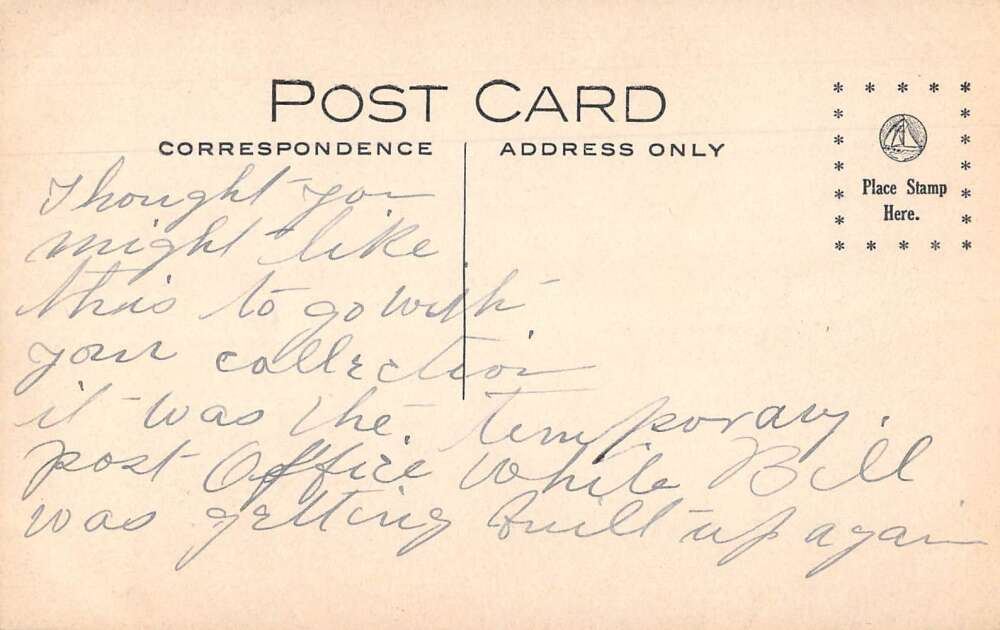 POST CARD
CORRESPONDENCE
ADDRESS ONLY
Place Stamp
Here.
Thought you
might like
this to go with
your collection
it was the temporary
post Office while Bill
was getting built up again